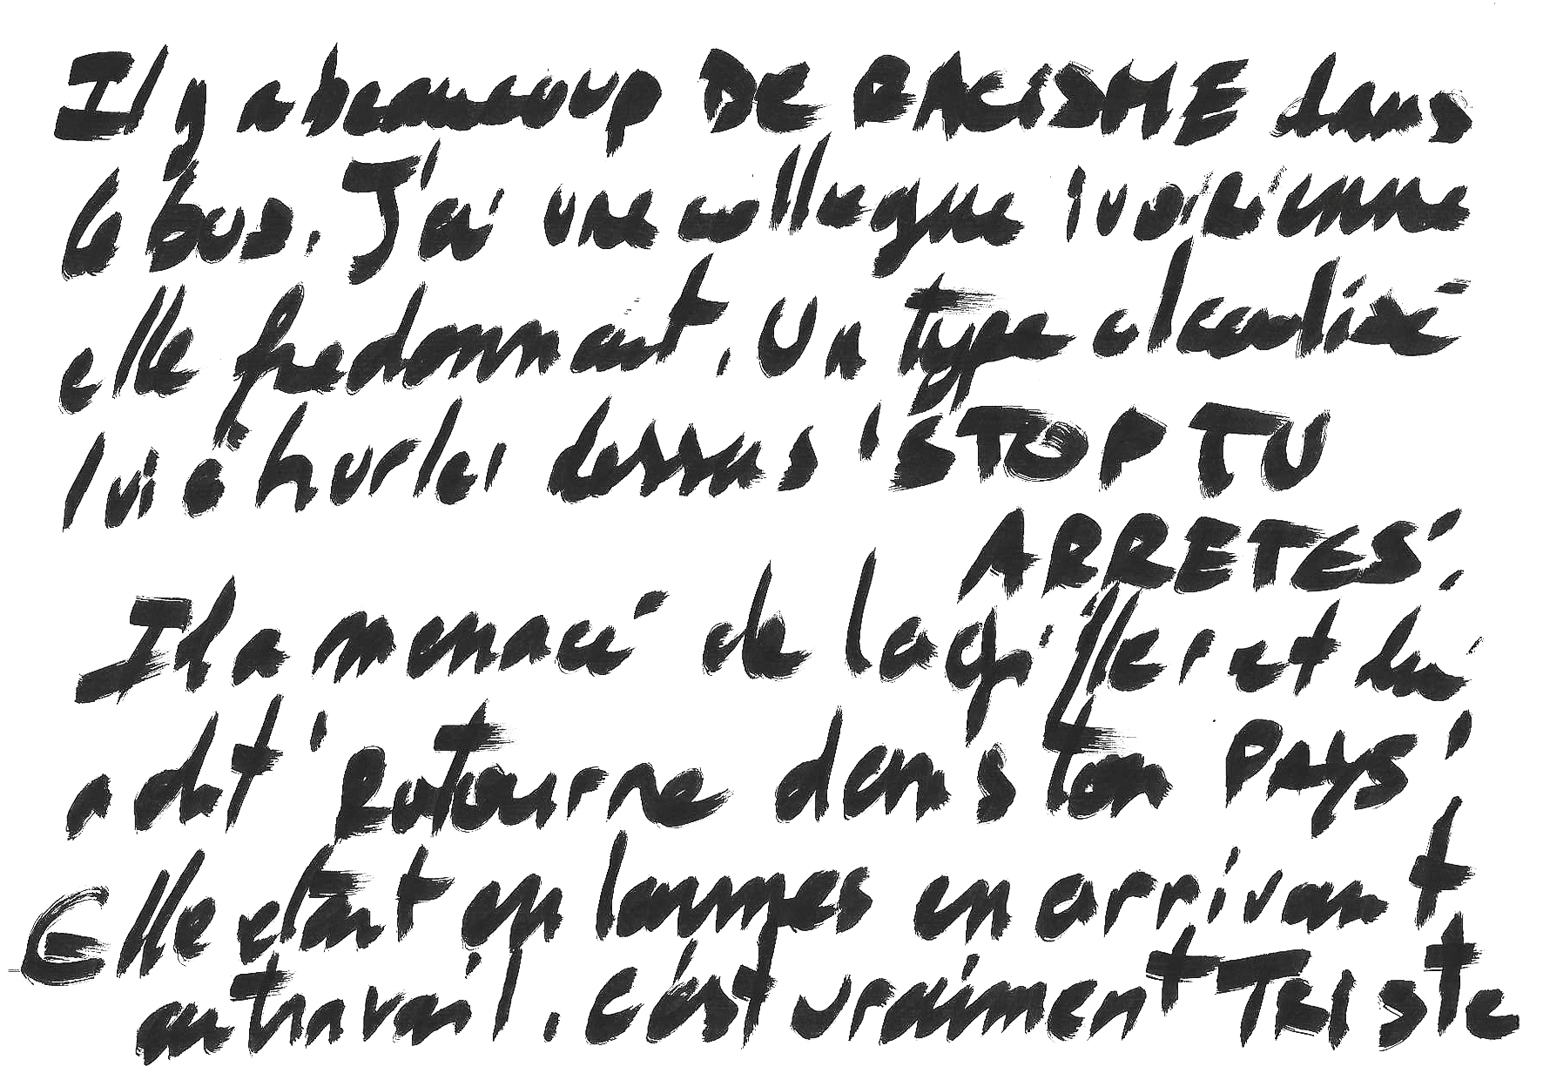 Il y a beaucoup DE RACISME dans
le bus. J'ai une collegue ivoirienne
elle fredonnait. Un type alcoolisé
lui a hurler dessus 'STOP TU
ARRETES'.
Il a menacé de la gifler et lui
a dit 'Retourne dans ton PAYS'
Elle etait en larmes en arrivant
au travail. C'est vraiment TRISte